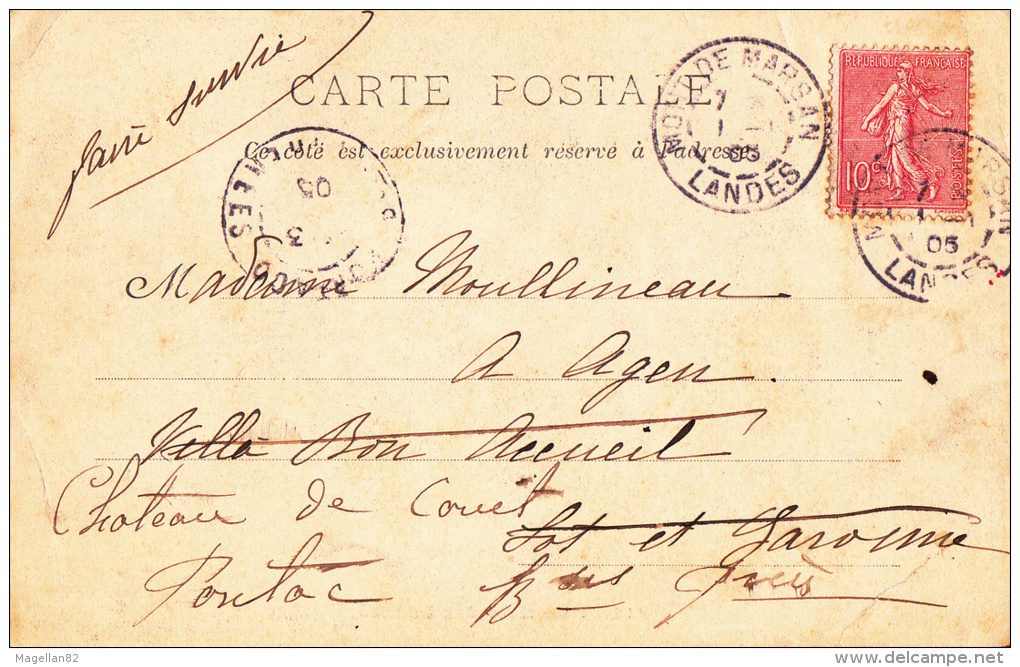 faire suivre
CARTE POSTALE
Ce côté est exclusivement réservé à l'adresse
MONT DE MARSAN
05
LANDES
REPUBLIQUE FRANÇAISE
10c
POSTES
05
LANDES
05
3
Madame Moullineau
A Agen.
Villa Bon Accueil
Chateau de
Lot et Garonne
Pontac Bses
Magellan82
delcampe.net